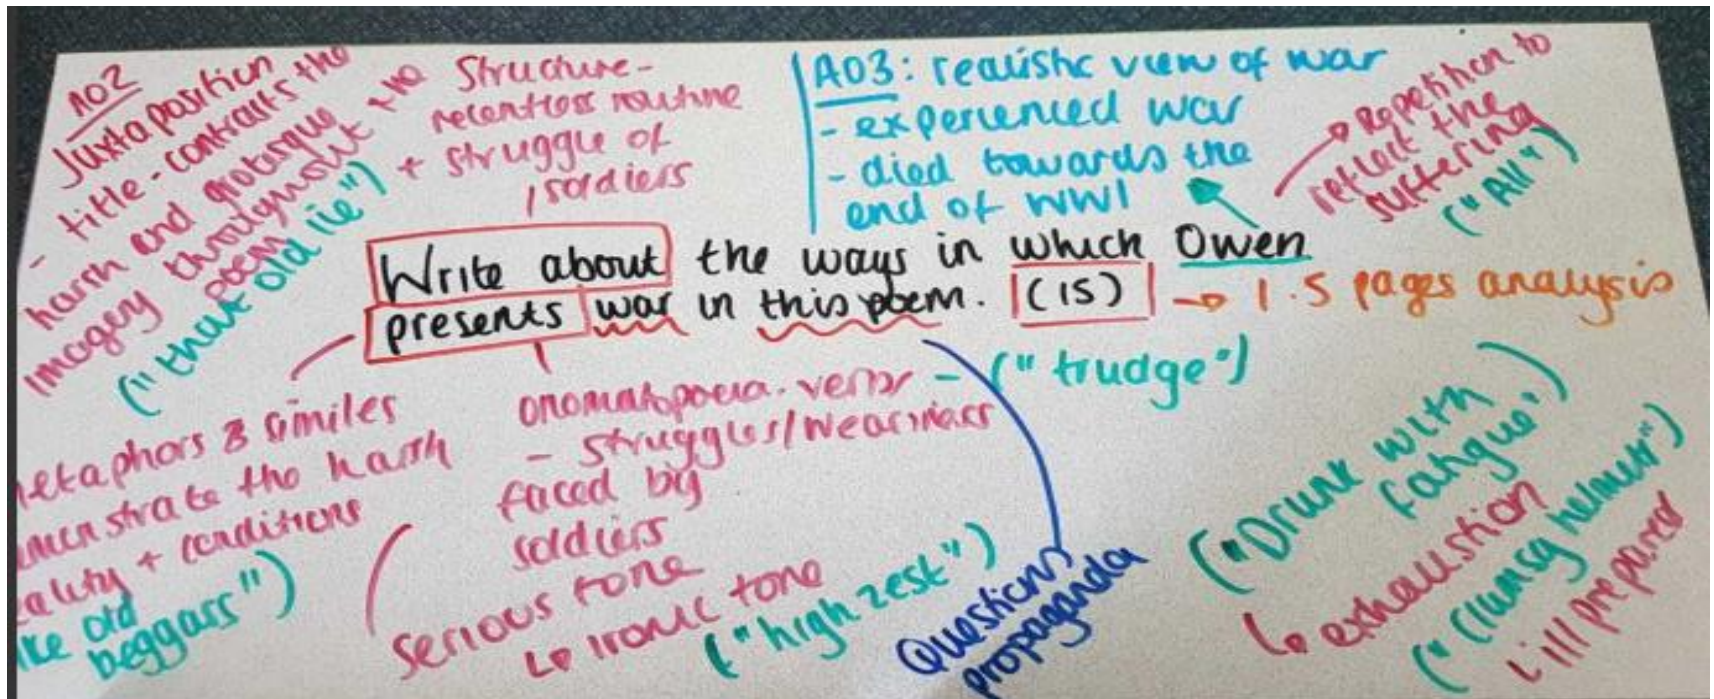 AO2
Juxtaposition
- title - contrasts the
harsh and grotesque
imagery throughout the
poem
("that old lie")
Structure -
relentless routine
+ struggle of
soldiers
AO3: realistic view of war
- experienced war
- died towards the
end of WW1
Repetition to
reflect the
suffering
("All")
Write about the ways in which Owen
presents war in this poem. (15) → 1.5 pages analysis
metaphors & similes
demonstrate the harsh
reality + conditions
like old
beggars")
onomatopoeia. verbs - ("trudge")
- struggles/weariness
faced by
soldiers
serious tone
↳ ironic tone
("high zest")
Questions
propaganda
("Drunk with
fatigue")
↳ exhaustion
("clumsy helmets")
ill prepared